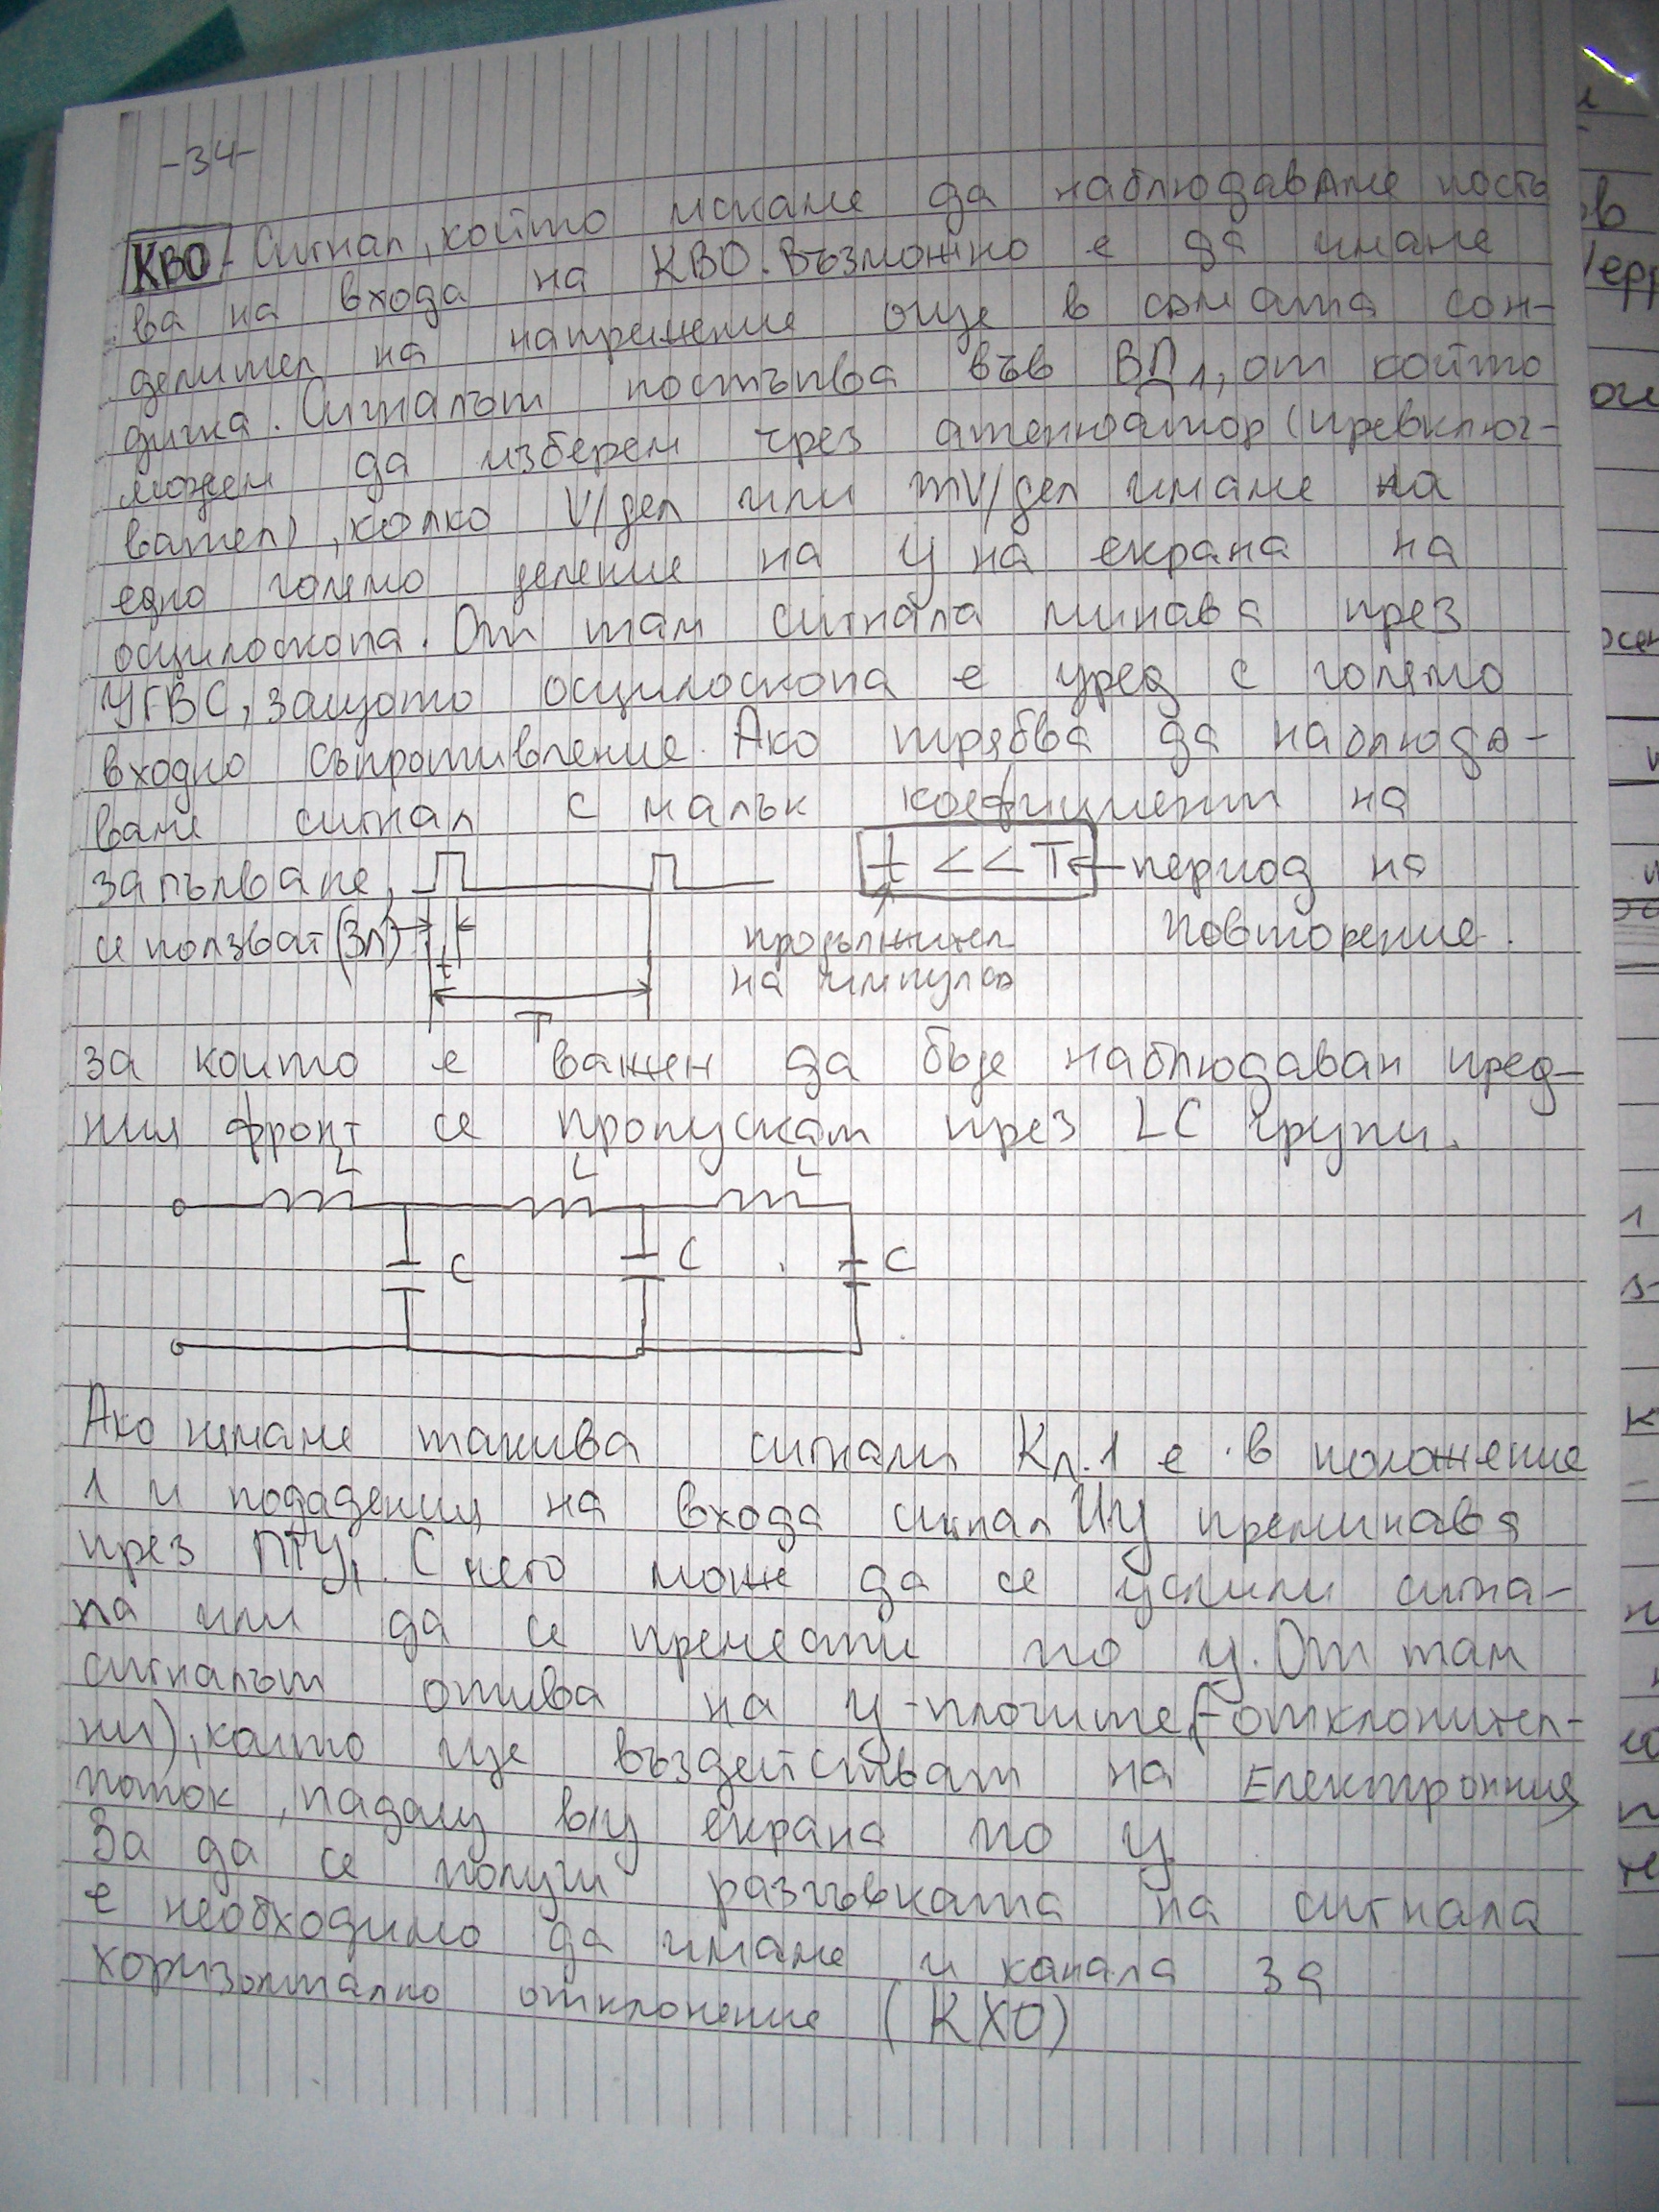 -34-
КВО - Сигнал, който искаме да наблюдаваме постъ
ва на входа на КВО. Възможно е да имаме
делител на напрежение още в самата сон-
дичка. Сигналът постъпва във ВД1, от който
можем да изберем чрез атенюатор (превключ-
вател), колко V/дел или mV/дел имаме на
едно голямо деление на y на екрана на
осцилоскопа. От там сигнала минава през
УГВС, защото осцилоскопа е уред с голямо
входно съпротивление. Ако трябва да наблюда-
ваме сигнал с малък коефициент на
запълване, t << T ← период на
се ползват (Зл) продължител повторение.
t на импулса
T
за които е важен да бъде наблюдаван пред-
ния фронт се пропускат през LC групи.
L L L
C C C
Ако нямаме такива сигнали Кл.1 е в положение
1 и подадения на входа сигнал Uy преминава
през ПТУ1. С него може да се усили сигна-
ла или да се премести по y. От там
сигналът отива на y-плочите (-отклонител-
ни), които ще въздействат на Електронния
поток, падащ в/у екрана по y
За да се получи разгъвката на сигнала
е необходимо да имаме и канала за
хоризонтално отклонение (КХО)